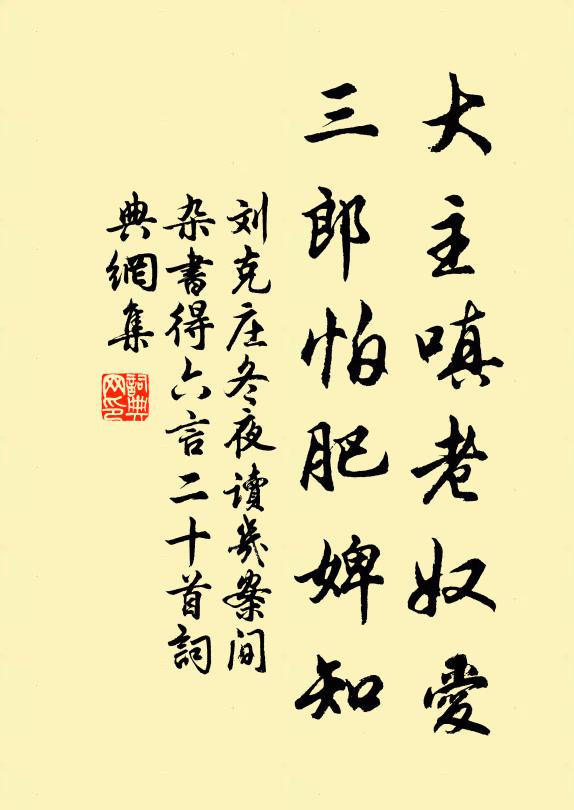 大主嗔老奴愛
三郎怕肥婢知
刘克庄冬夜讀几案間
杂書得六言二十首詞
典網集
詞典
网印